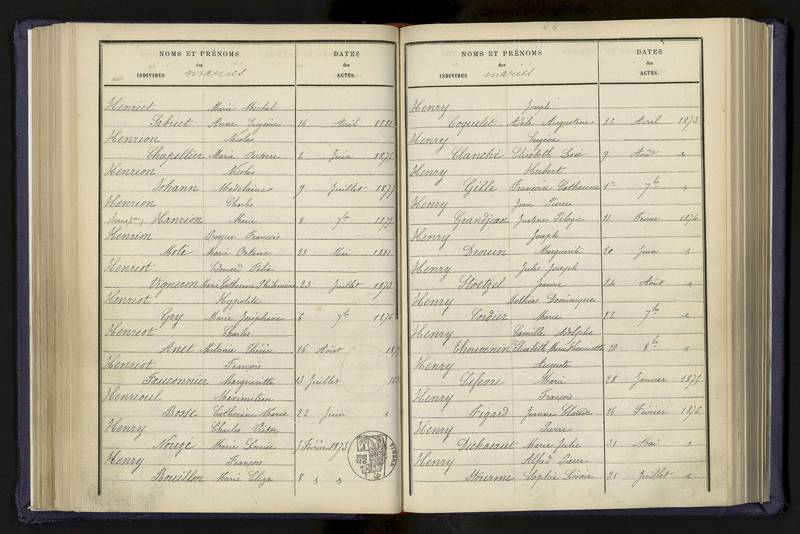 NOMS ET PRÉNOMS
des
INDIVIDUS mariés
DATES
des
ACTES.
Henriet Marie Michel
Sabriet Anne Eugénie 16 Avril 1881
Henrion Nicolas
Chapeltier Marie Victoire 2 Juin 1875
Henrion Nicolas
Johann Madelaine 9 Juillet 1877
Henrion Charles
Hanrion Marie 8 7bre 1879
Henrion Prosper François
Molé Marie Octavie 23 Mai 1881
Henriot Edouard Félix
Vigneron Marie Catherine Philomène 23 Juillet 1873
Henriot Hyppolite
Gry Marie Joséphine 6 7bre 1876
Henriot Charles
Anet Mélanie 16 Août 187
Henriot François
Fauconnier Marguerite 13 Juillet 18
Maximilien
Bosse Catherine Marie 22 Juin
Henry Charles Victor
Marie Louise Février 1873
Henry François
Bouillon Marie Eliza 8 " "
TIMBRE
NOMS ET PRÉNOMS
des
INDIVIDUS mariés
DATES
des
ACTES.
Henry Joseph
Coquelet Adèle Augustine Avril 1873
Henry Eugène
Clanché Elisabeth 9 Août "
Henry Hubert
Gille Françoise Catherine 1er 7bre "
Henry Jean Pierre
Grandjean Justine Pélagie 11 Février 1874
Henry Joseph
Drouin Marguerite 20 Juin "
Henry Jules Joseph
Stoetzel Jeanne 24 Août "
Henry Mathias Dominique
Cordier Marie 22 7bre "
Henry Camille Adolphe
Thouvenin Elisabeth Marie Henriette 10 8bre "
Henry Auguste
Lefevre Marie 28 Janvier 1875
Henry François
Figard Jeanne 16 Février 1876
Henry Pierre
Marie Julie 31 Mai "
Henry Alfred Pierre
Sophie 31 Juillet "